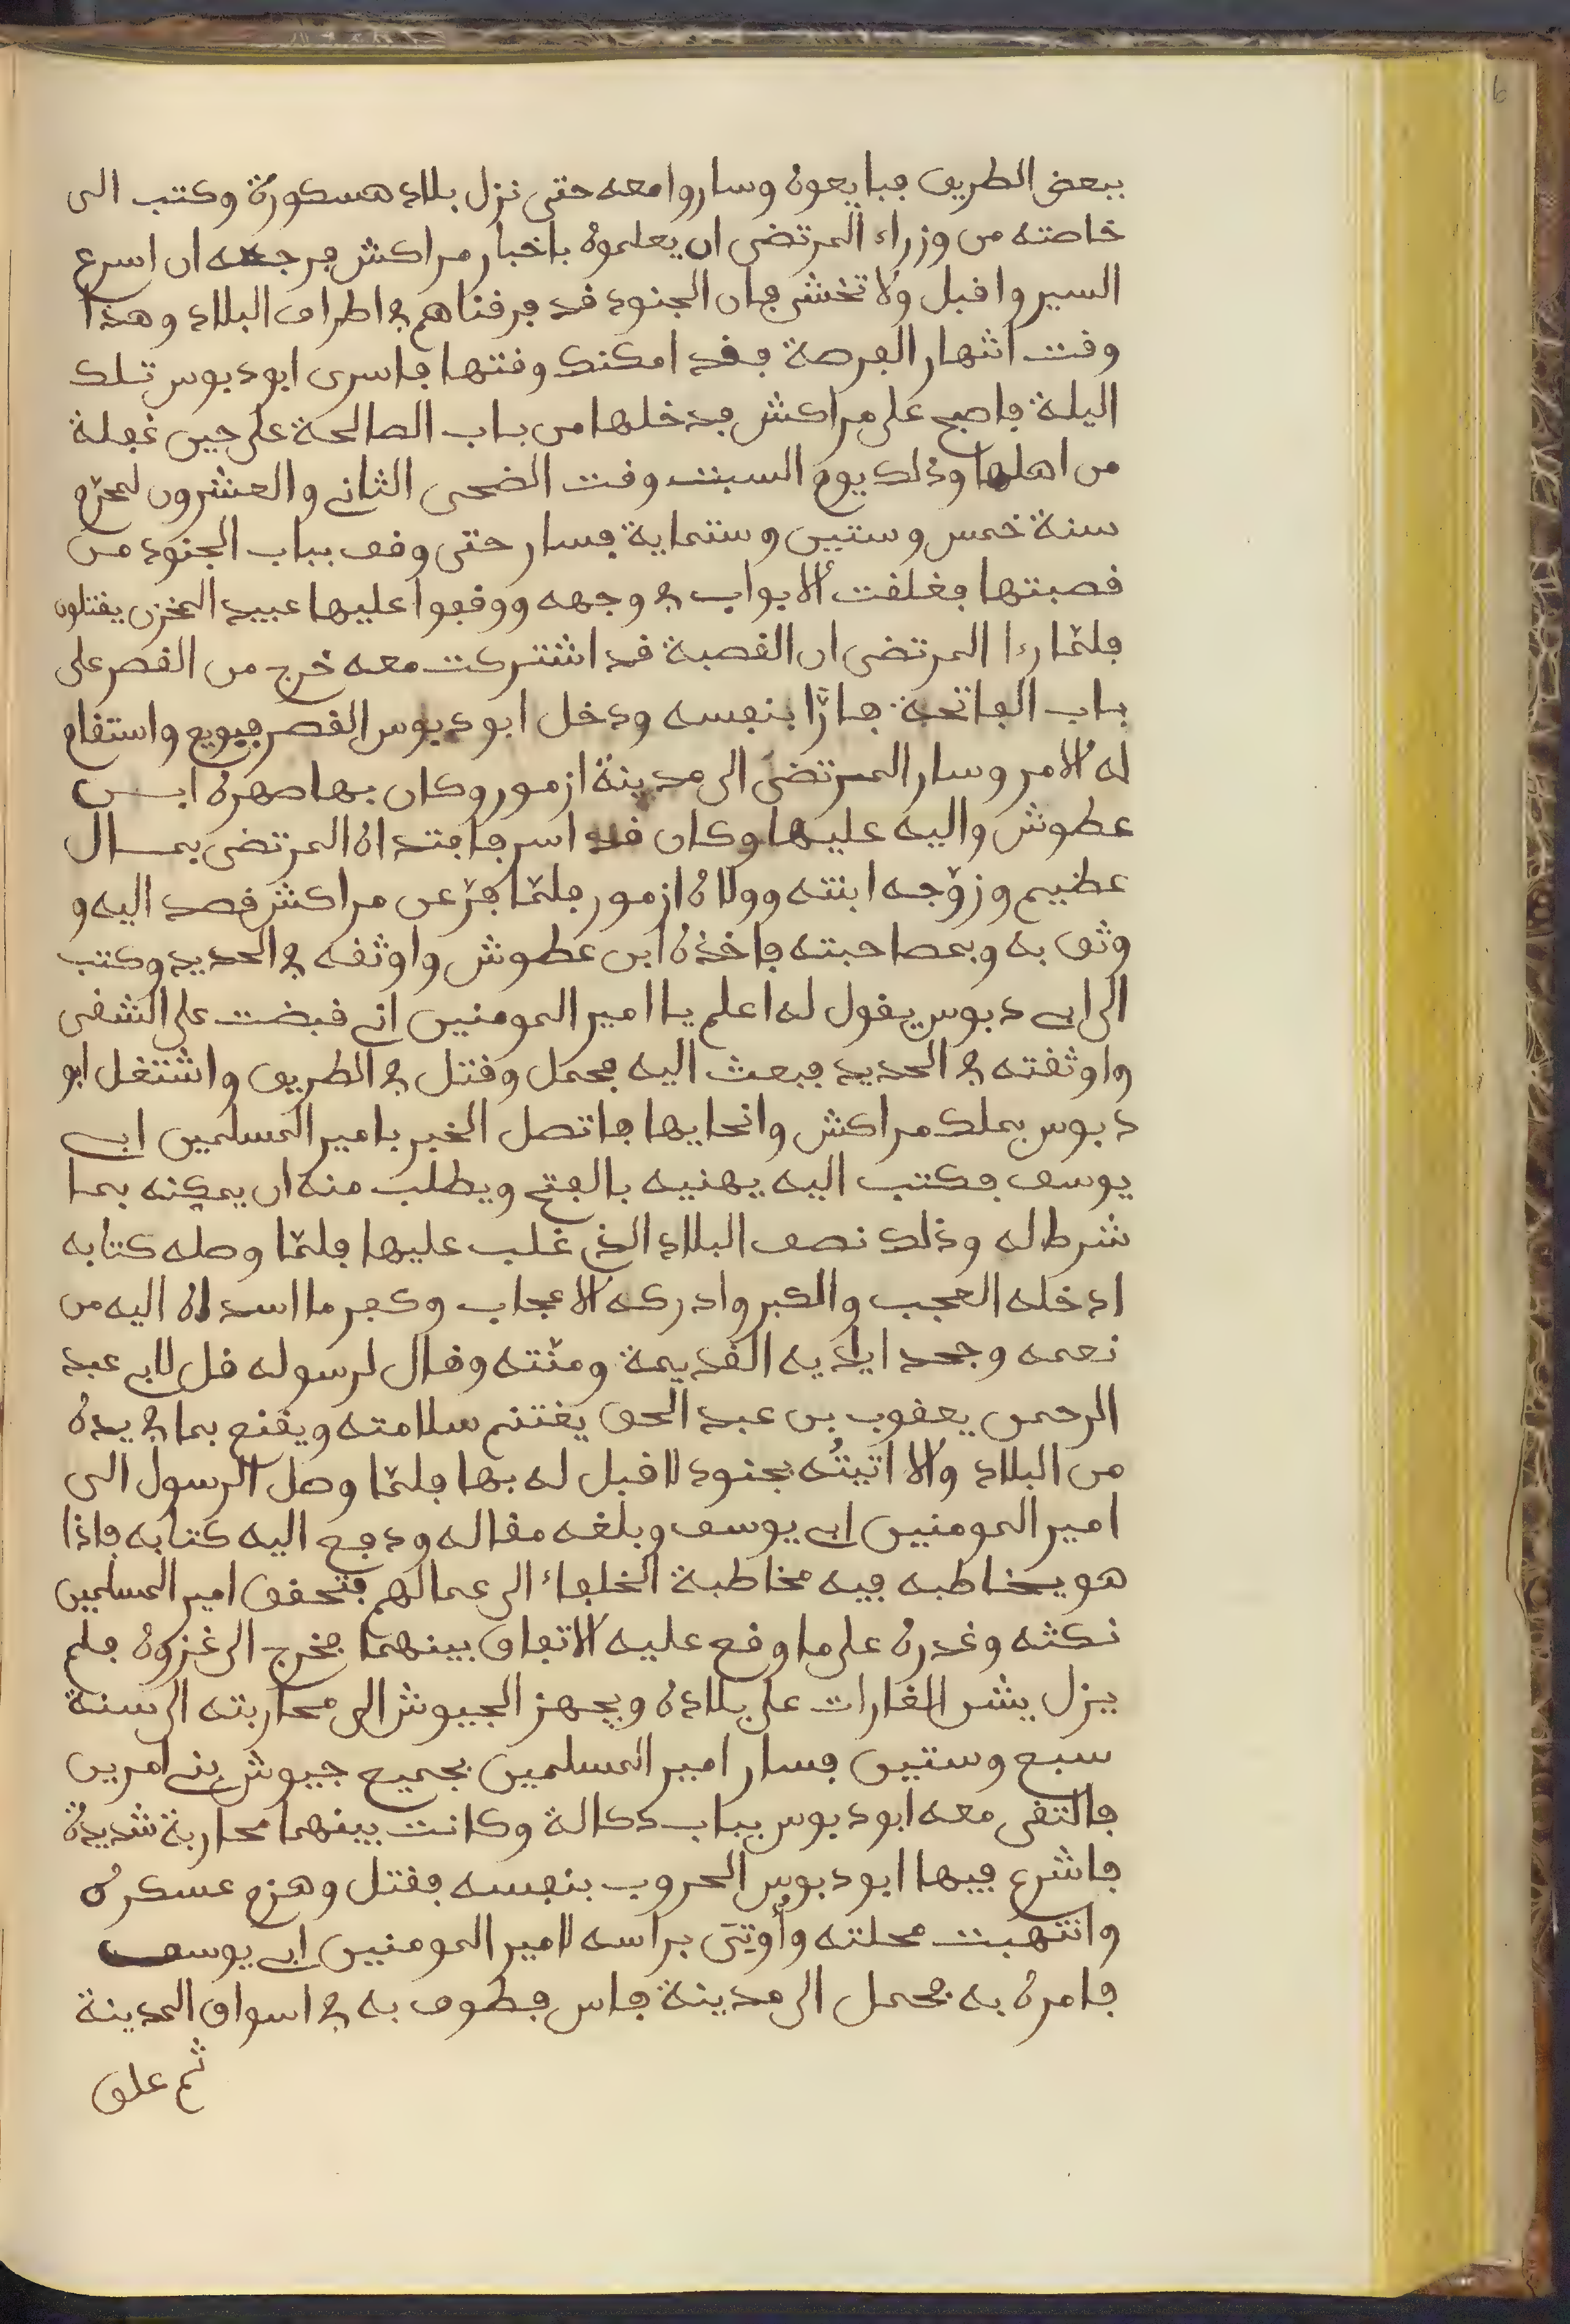 ببعض الطريق فبايعوه وساروا معه حتى نزل بلاد هسكورة وكتب الى
خاصته من وزراء المرتضى ان يعلموه باخبار مراكش فرجعه ان اسرع
السير واقبل ولا تخش فان الجنود قد فرقناهم في اطراف البلاد وهذا
وقت انتهار الفرصة فقد امكنك وقتها فاسرى ابو دبوس تلك
اليلة فاصبح على مراكش فدخلها من باب الصالحة على حين غفلة
من اهلها وذلك يوم السبت وقت الضحى الثاني والعشرون لمحرّم
سنة خمس وستين وستماية فسار حتى وقف بباب الجنود من
قصبتها فغلقت الابواب في وجهه ووقفوا عليها عبيد المخزن يقتلون
فلمّا رءا المرتضى ان القصبة قد اشتركت معه خرج من القصر على
باب الفاتحة فارّا بنفسه ودخل ابو دبوس القصر فبويع واستقام
له الامر وسار المرتضى الى مدينة ازمور وكان بها صهره ابن
عطوش واليه عليها وكان قد اسر فافتداه المرتضى بمال
عظيم وزوّجه ابنته وولاه ازمور فلمّا فرّ عن مراكش قصد اليه و
وثق به وبمصاحبته فاخذه ابن عطوش واوثقه في الحديد وكتب
الى ابي دبوس يقول له اعلم يا امير المومنين اني قبضت على الشقى
واوثقته في الحديد فبعث اليه فحمل وقتل في الطريق واشتغل ابو
دبوس بملك مراكش وانحايها فاتصل الخبر بامير المسلمين ابي
يوسف فكتب اليه يهنيه بالفتح ويطلب منه ان يمكنه بما
شرط له وذلك نصف البلاد الذي غلب عليها فلمّا وصله كتابه
ادخله العجب والكبر وادركه الاعجاب وكفر ما اسداه اليه من
نعمه وجحد اياديه القديمة ومنّته وقال لرسوله قل لابي عبد
الرحمن يعقوب بن عبد الحق يغتنم سلامته ويقنع بما في يده
من البلاد والا اتيتُه بجنود لا قبل له بها فلمّا وصل الرسول الى
امير المومنين ابي يوسف وبلغه مقاله ودفع اليه كتابه فاذا
هو يخاطبه فيه مخاطبة الخلفاء الى عمالهم فتحقق امير المسلمين
نكثه وغدره على ما وقع عليه الاتفاق بينهما فخرج الى غزوه فلم
يزل يشن الغارات على بلاده ويجهز الجيوش الى محاربته الى سنة
سبع وستين فسار امير المسلمين بجميع جيوش بني امرين
فالتقى معه ابو دبوس بباب دكالة وكانت بينهما محاربة شديدة
فاشرع فيها ابو دبوس الحروب بنفسه فقتل وهزم عسكره
وانتهبت محلته وأوتى براسه لامير المومنين ابي يوسف
فامره به فحمل الى مدينة فاس فطوف به في اسواق المدينة
ثم علق